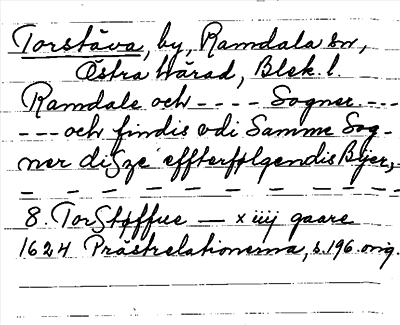 Torstäva, by, Ramdala sn,
Östra härad, Blek. l.
Ramdale och - - - - Sogner - - -
- - - och findis vdi Samme Sog-
ner disze effterfølgendis Bÿer,
- - - - - - - - - - - - -
8. Torstøffue — x iiij gaare
1624 Prästrelationerna, s. 196. orig.